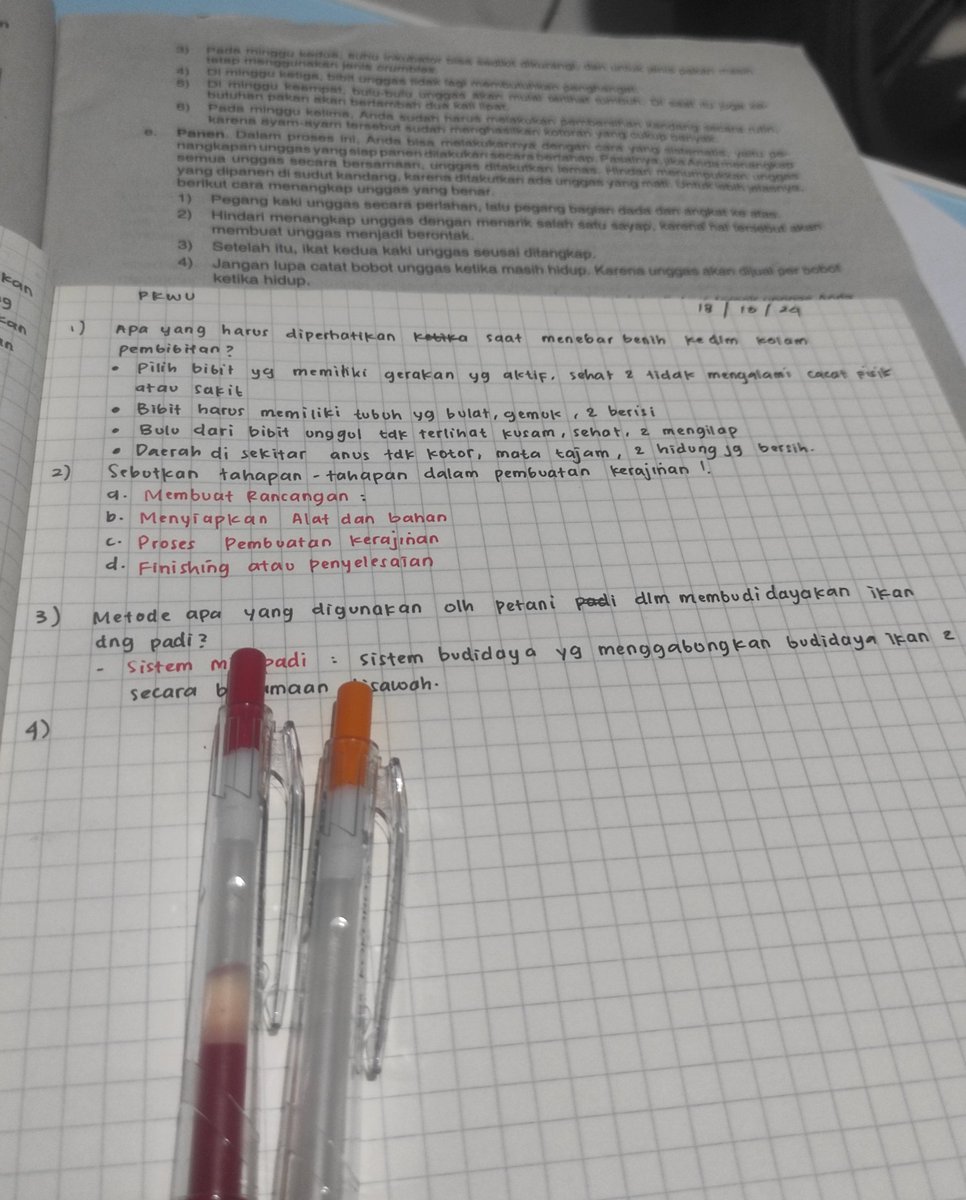 3) Pada minggu kedua, suhu inkubator bisa sedikit dikurangi, dan untuk jenis pakan masih
tetap menggunakan jenis crumbles.
4) Di minggu ketiga, bibit unggas tidak lagi membutuhkan penghangat.
5) Di minggu keempat, bulu-bulu unggas akan mulai terlihat tumbuh. Di saat itu juga ke-
butuhan pakan akan bertambah dua kali lipat.
6) Pada minggu kelima, Anda sudah harus melakukan pembersihan kandang secara rutin,
karena ayam-ayam tersebut sudah menghasilkan kotoran yang cukup banyak.
e. Panen. Dalam proses ini, Anda bisa melakukannya dengan cara yang sistematis, yaitu pe-
nangkapan unggas yang siap panen dilakukan secara bertahap. Pasalnya, jika Anda menangkap
semua unggas secara bersamaan, unggas ditakutkan lemas. Hindari menumpukkan unggas
yang dipanen di sudut kandang, karena ditakutkan ada unggas yang mati. Untuk lebih jelasnya,
berikut cara menangkap unggas yang benar.
1) Pegang kaki unggas secara perlahan, lalu pegang bagian dada dan angkat ke atas.
2) Hindari menangkap unggas dengan menarik salah satu sayap, karena hal tersebut akan
membuat unggas menjadi berontak.
3) Setelah itu, ikat kedua kaki unggas seusai ditangkap.
4) Jangan lupa catat bobot unggas ketika masih hidup. Karena unggas akan dijual per bobot
ketika hidup.
PKWU
18 / 10 / 24
1) Apa yang harus diperhatikan ketika saat menebar benih kedlm kolam
pembibitan?
• Pilih bibit yg memiliki gerakan yg aktif, sehat & tidak mengalami cacat fisik
atau sakit
• Bibit harus memiliki tubuh yg bulat, gemuk, & berisi
• Bulu dari bibit unggul tdk terlihat kusam, sehat, & mengilap
• Daerah di sekitar anus tdk kotor, mata tajam, & hidung yg bersih.
2) Sebutkan tahapan-tahapan dalam pembuatan kerajinan!
a. Membuat Rancangan :
b. Menyiapkan Alat dan bahan
c. Proses Pembuatan kerajinan
d. Finishing atau penyelesaian
3) Metode apa yang digunakan olh petani padi dlm membudidayakan ikan
dng padi?
- Sistem padi : sistem budidaya yg menggabungkan budidaya ikan &
secara disawah.
4)
kan
g
kan
an